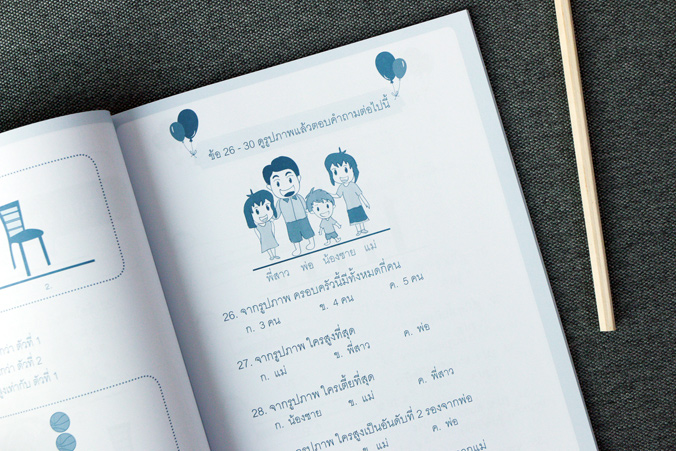 2.
กว่า ตัวที่ 1
กว่า ตัวที่ 2
สูงเท่ากับ ตัวที่ 1
ข้อ 26 - 30 ดูรูปภาพแล้วตอบคำถามต่อไปนี้
พี่สาว พ่อ น้องชาย แม่
26. จากรูปภาพ ครอบครัวนี้มีทั้งหมดกี่คน
ก. 3 คน ข. 4 คน ค. 5 คน
27. จากรูปภาพ ใครสูงที่สุด
ก. แม่ ข. พี่สาว ค. พ่อ
28. จากรูปภาพ ใครเตี้ยที่สุด
ก. น้องชาย ข. แม่ ค. พี่สาว
รูปภาพ ใครสูงเป็นอันดับที่ 2 รองจากพ่อ
ข. แม่ ค. พ่อ